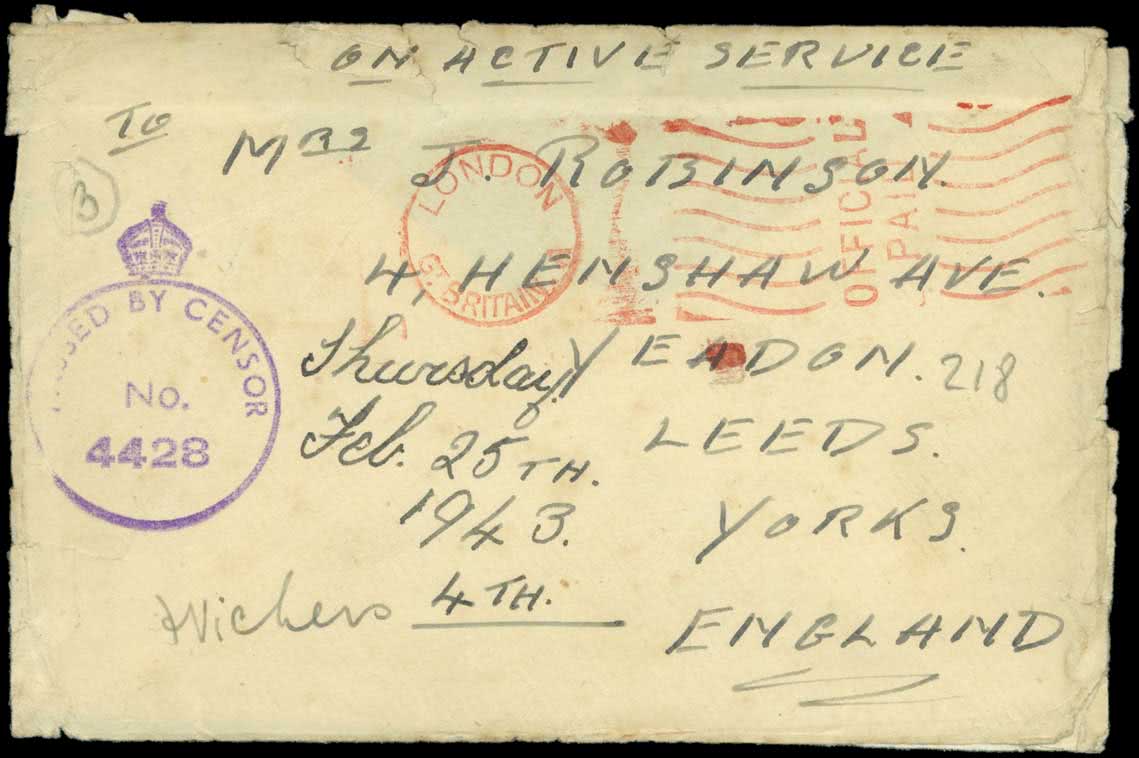 ON ACTIVE SERVICE
TO
MRS J. ROBINSON.
4, HENSHAW AVE.
YEADON. 218
LEEDS.
YORKS.
ENGLAND
3
PASSED BY CENSOR
No.
4428
LONDON
GT. BRITAIN
OFFICIAL
PAID
Thursday
Feb. 25TH.
1943.
4TH.